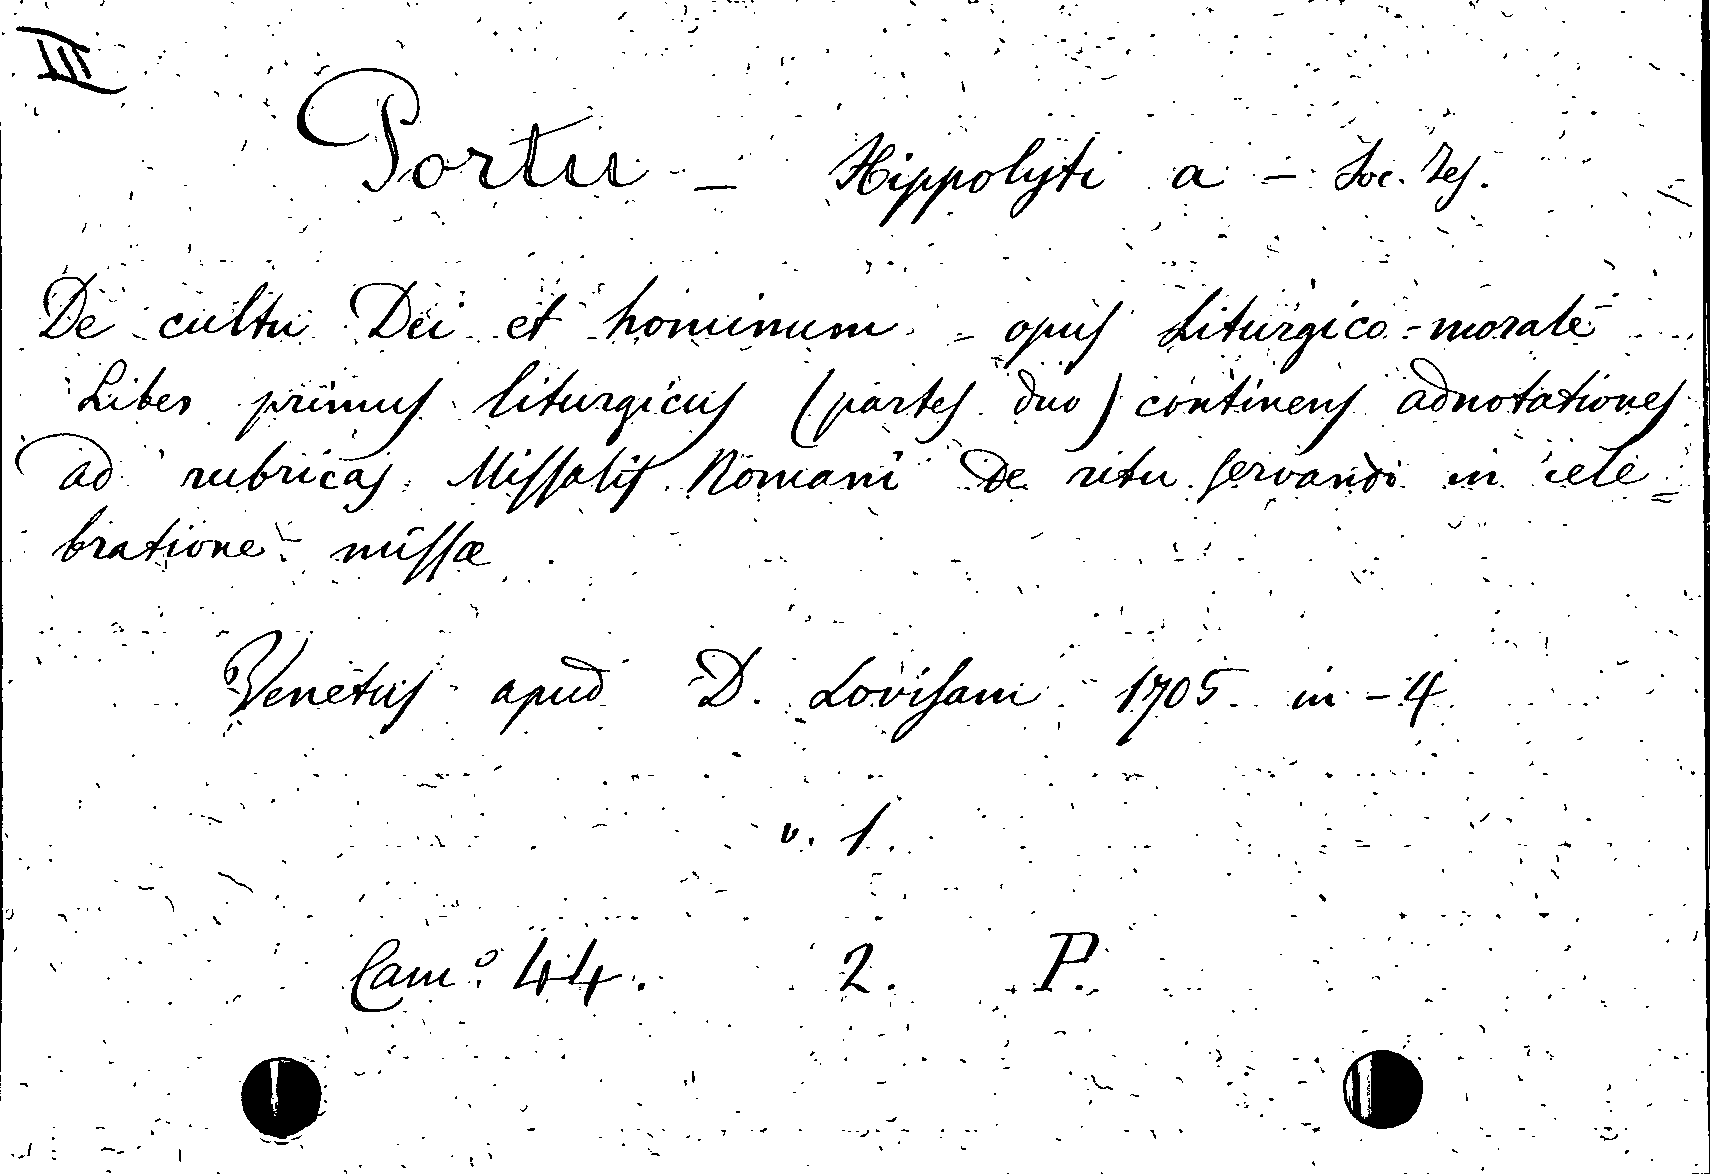 III
Portu - Hippolyti a - Soc. Jes.
De cultu Dei et hominum - opus Liturgico-morale
Liber primus liturgicus (partes duo) continens adnotationes
ad rubricas Missalis Romani De ritu servando in cele=
bratione missæ
Venetiis apud D. Lovisam 1705 in-4
v. 1.
Camº 44. 2. P.